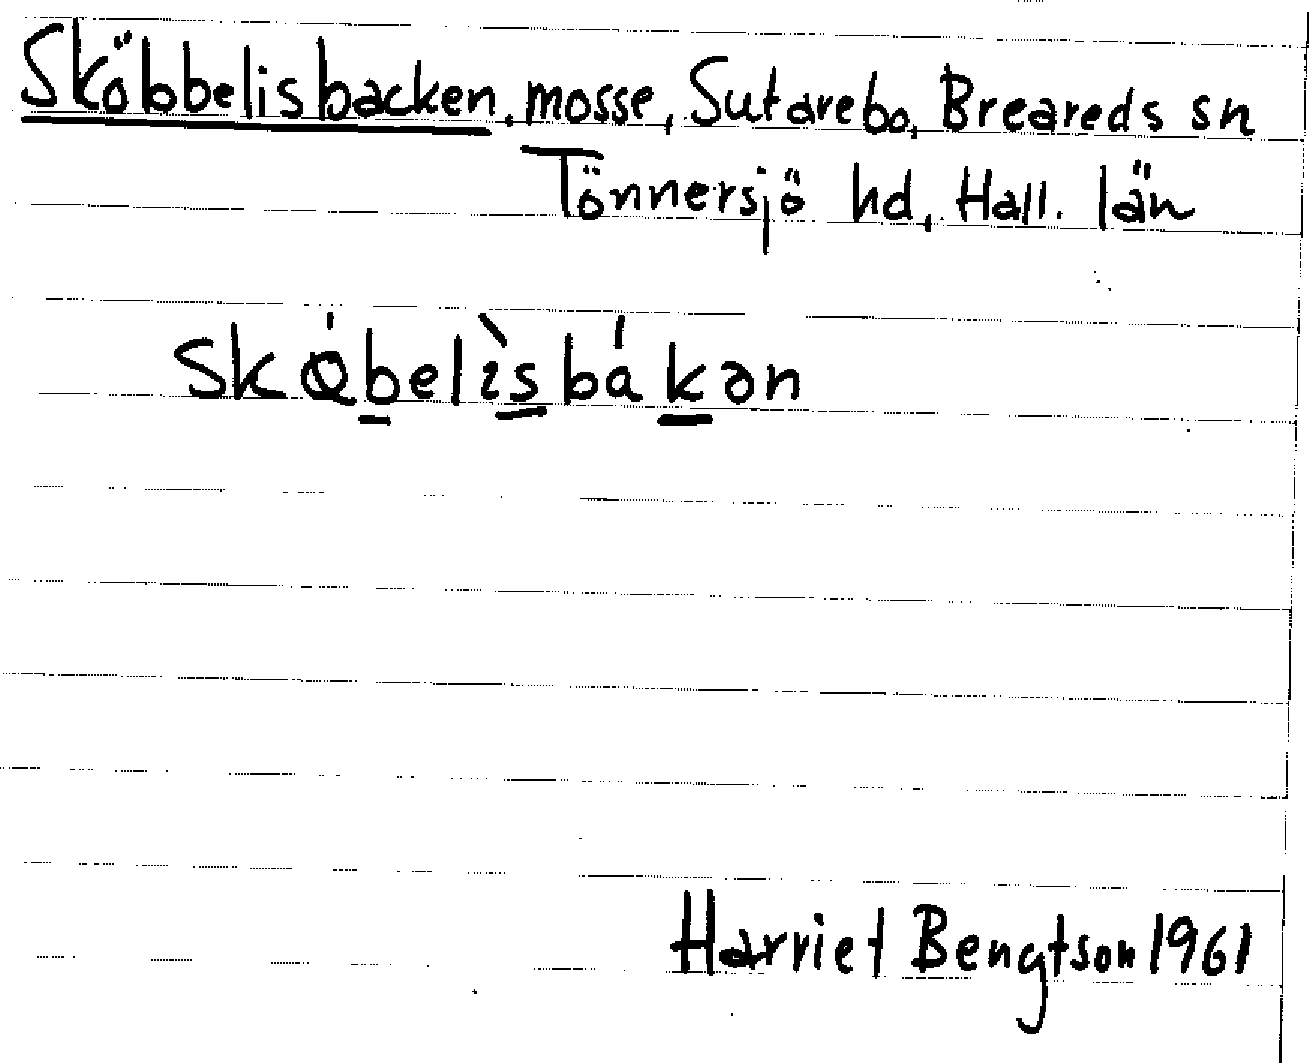 Sköbbelisbacken, mosse, Sutarebo, Breareds sn
Tönnersjö hd, Hall. län
Skǿbelìsbákən
Harriet Bengtson 1961